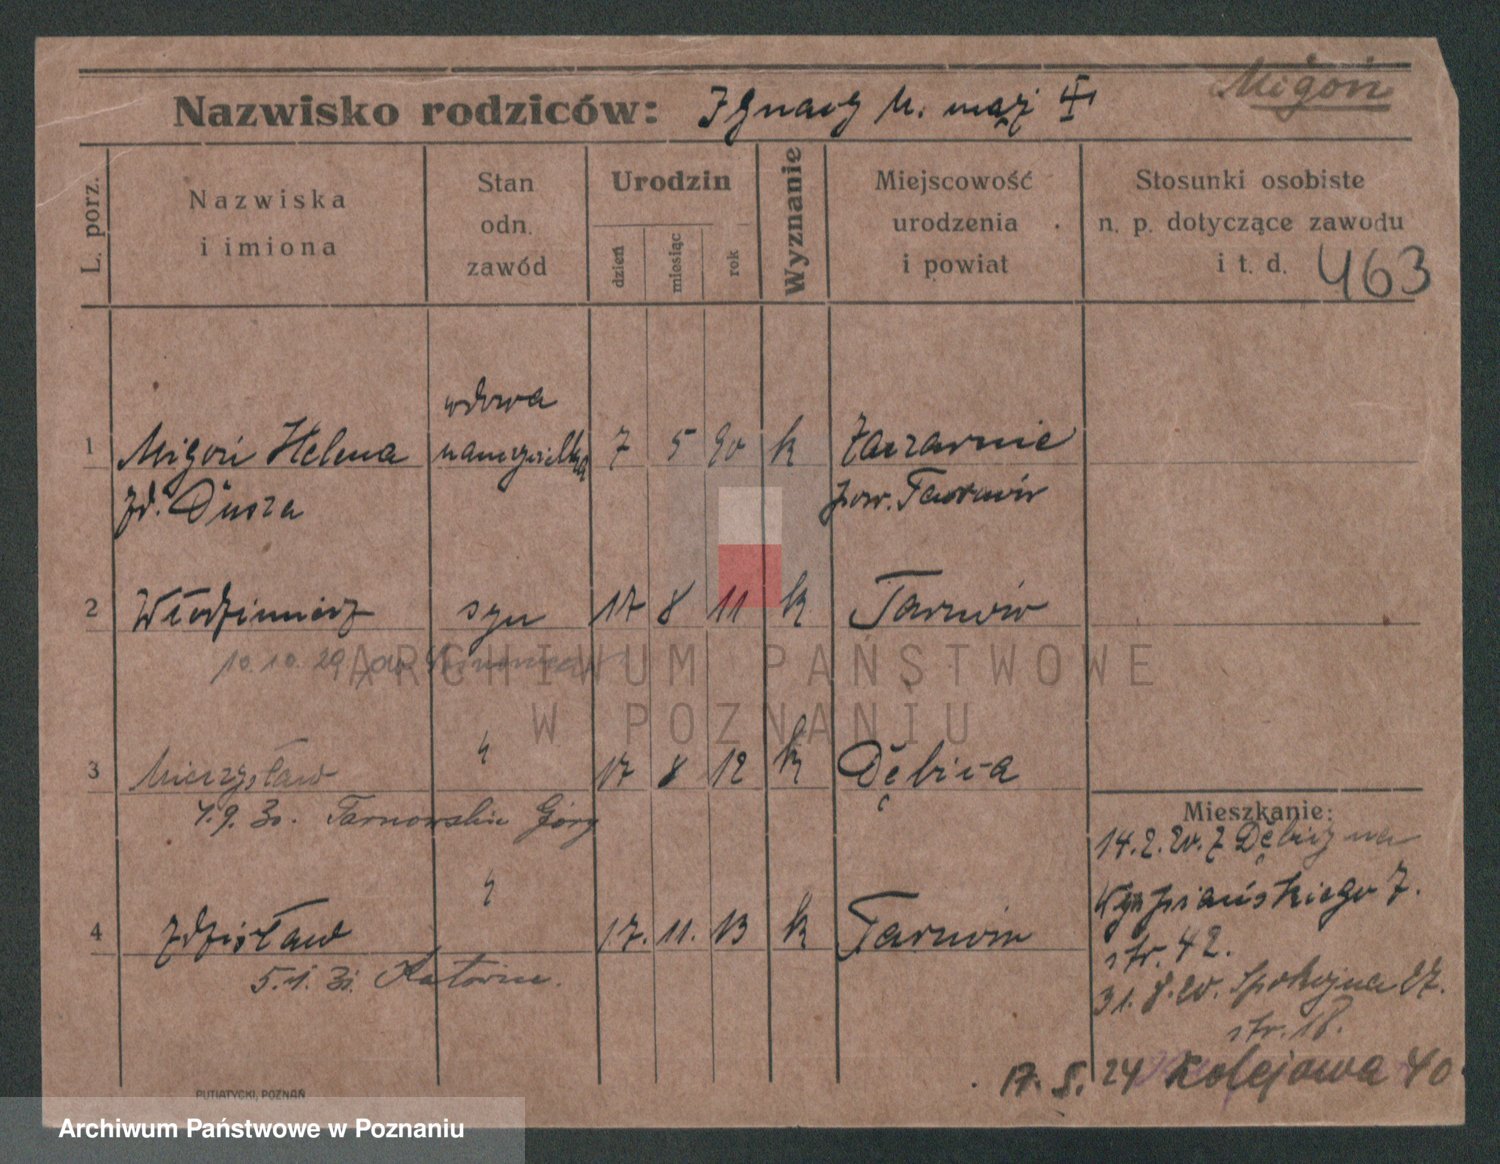 Migoń
Nazwisko rodziców: Ignacy M. mąż
L. porz.
Nazwiska
i imiona
Stan
odn.
zawód
Urodzin
dzień
miesiąc
rok
Wyznanie
Miejscowość
urodzenia
i powiat
Stosunki osobiste
n. p. dotyczące zawodu
i t. d. 463
wdowa
1 Migoń Helena nauczycielka 7 5 90 k Zaczarnie
zd. Dusza pow. Tarnów
2 Włodzimierz syn 17 8 11 k Tarnów
10.10.29
3 Mieczysław " 17 8 12 k Dębica
4.9.30. Tarnowskie Góry
4 Zdzisław " 17. 11. 13 k Tarnów
5.1.31. Katowice.
Mieszkanie:
14.2.20. z Dębicy na
Wyspiańskiego 7.
str. 42.
31.8.20. Spokojna 27.
str. 18.
17.5.24 Kolejowa 40
PUTIATYCKI, POZNAŃ
ARCHIWUM PAŃSTWOWE
W POZNANIU
Archiwum Państwowe w Poznaniu